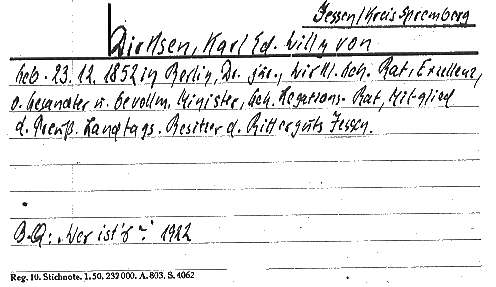 Jessen/Kreis Spremberg
Dirksen, Karl Ed. Willy von
Geb. 23.12.1852 in Berlin, Dr. jur., Wirkl. Geh. Rat, Exellenz,
a. Gesandter u. bevollm. Minister, Geh. Legations-Rat, Mitglied
d. Preuß. Landtags. Besitzer d. Ritterguts Jessen.
B.Q.: „Wer ist's?" 1922
Reg. 10. Stichnote. 1. 50. 237000. A. 803. S. 4062